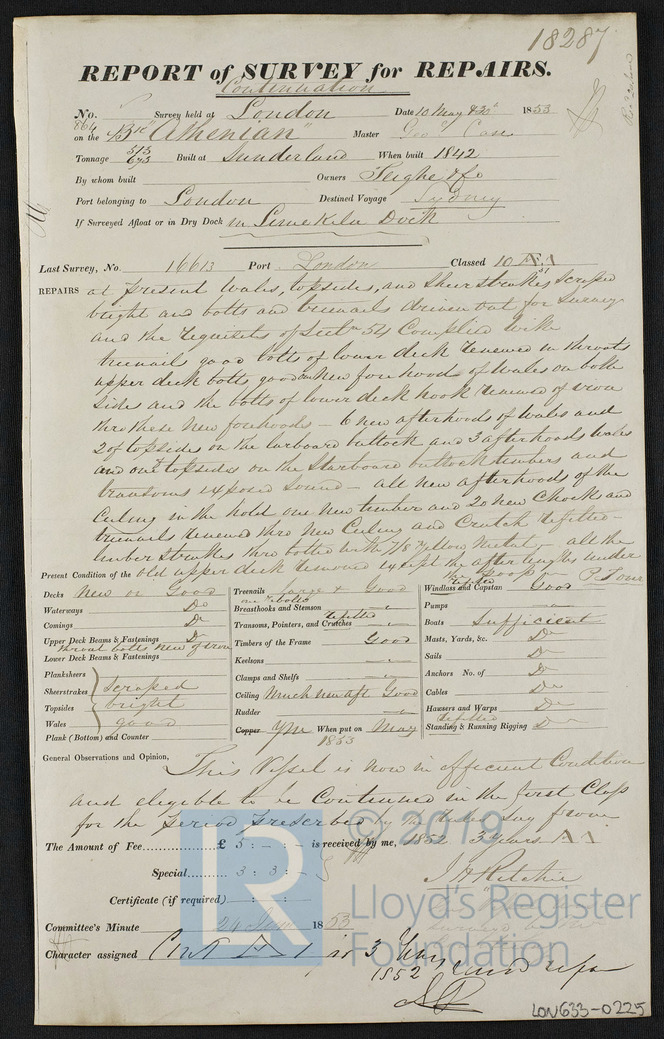 18287
REPORT of SURVEY for REPAIRS.
Continuation
No. 864 Survey held at London Date 10 May & 1853
on the Bk "Athenian" Master Geo Case
Tonnage 515 673 Built at Sunderland When built 1842
By whom built Owners Teighe & Co
Port belonging to London Destined Voyage Sydney
If Surveyed Afloat or in Dry Dock in Limekiln Dock
Last Survey, No. 16613 Port London Classed 10 A1
REPAIRS at present Wales, topsides, and sheerstrakes scraped
bright and bolts and treenails driven out for survey
and the requisits of Sectn 54 Complied with
treenails good bolts of lower deck renewed in throats
upper deck bolts good new forehoods of Wales on both
sides and the bolts of lower deck hook renewed of iron
thro these new forehoods - 6 new afterhoods of Wales and
2 of topsides on the larboard buttock and 3 afterhoods Wales
and one topsides on the starboard buttock timbers and
transoms exposed sound - all new afterhoods of the
Ceiling in the hold one new timber and 20 new Chocks and
treenails renewed thro new Ceiling and Crutch refitted -
limber strakes thro bolted with 7/8 yellow Metal - all the
old upper deck renewed except the after lengths under
the poop P. Tour
Present Condition of the
Decks New or Good
Waterways Do
Comings Do
Upper Deck Beams & Fastenings Do
throat bolts new of iron
Lower Deck Beams & Fastenings
Planksheers
Sheerstrakes
Topsides
Wales
scraped
bright
good
Plank (Bottom) and Counter
Treenails Good
Breasthooks and Stemson
Transoms, Pointers, and Crutches refitted
Timbers of the Frame Good
Keelsons
Clamps and Shelfs
Ceiling Much new aft Good
Rudder
Copper YM When put on May
1853
Windlass and Capstan refitted Good
Pumps
Boats Sufficient
Masts, Yards, &c. Do
Sails Do
Anchors No. of Do
Cables Do
Hawsers and Warps Do
refitted
Standing & Running Rigging Do
General Observations and Opinion,
This Vessel is now in efficient Condition
and eligible to be Continued in the first Class
for the Period Prescribed by the from
The Amount of Fee £ 5 : - : - is received by me, 1852 3 years A1
Special 3 : 3 : -
J H Ritchie
Certificate (if required) : :
Committee's Minute 24 June 1853
Character assigned Cont A 1 for 3 Years from
1852
© 2019
Lloyd's Register
Foundation
LR
LON633-0225